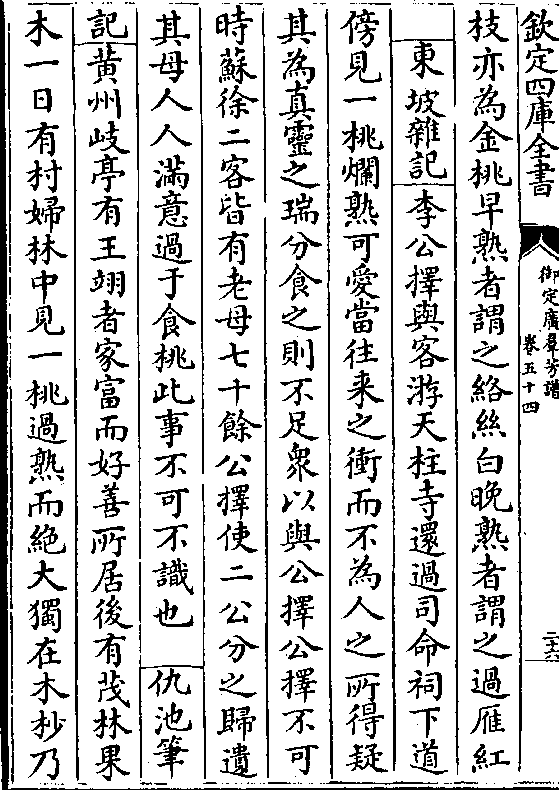 欽定四庫全書
御定廣羣芳譜
卷五十四
二十六
枝亦為金桃早熟者謂之絡絲白晚熟者謂之過雁紅
東坡雜記李公擇與客游天柱寺還過司命祠下道
傍見一桃爛熟可愛當往来之衝而不為人之所得疑
其為真靈之瑞分食之則不足衆以與公擇公擇不可
時蘇徐二客皆有老母七十餘公擇使二公分之歸遺
其母人人滿意過于食桃此事不可不識也 仇池筆
記黄州岐亭有王翊者家富而好善所居後有茂林果
木一日有村婦林中見一桃過熟而絶大獨在木杪乃